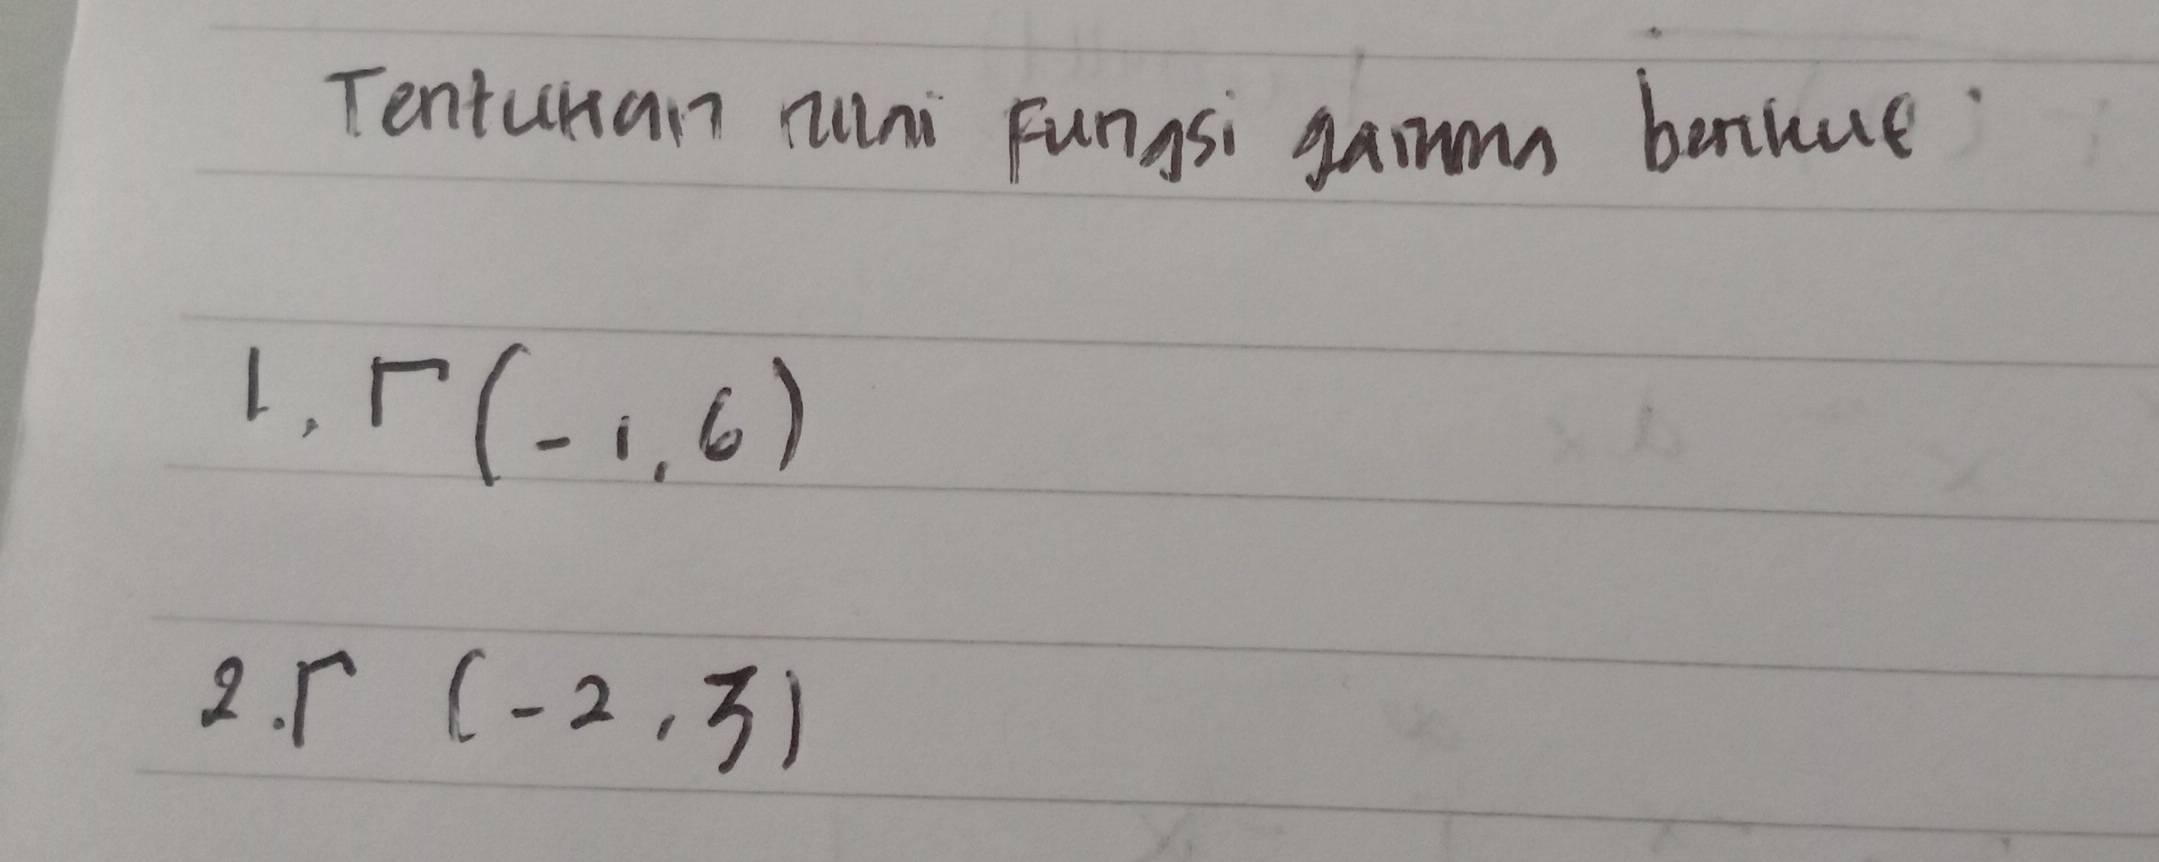 Tentukan nilai Fungsi gamma berikut :
1. Γ (-1,6)
2. Γ (-2,3)